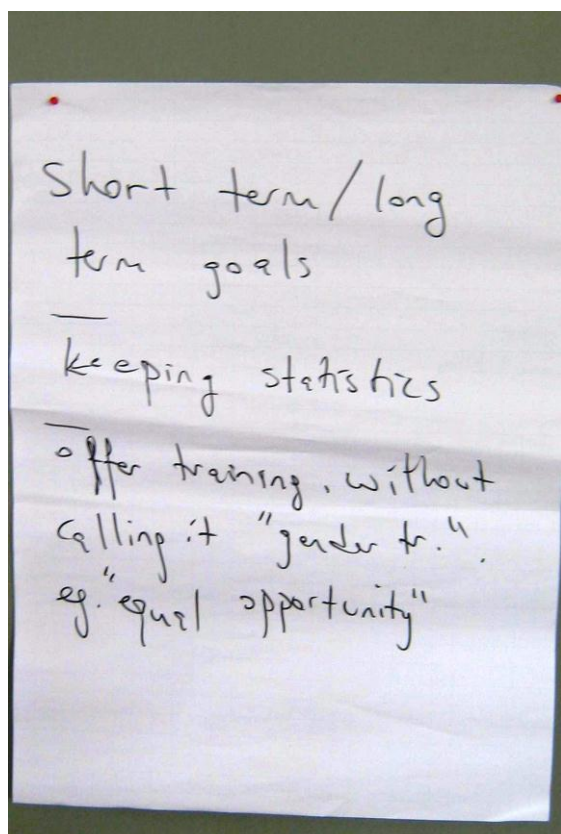 Short term/long
term goals
—
keeping statistics
—
offer training, without
calling it "gender tr.".
eg. "equal opportunity"